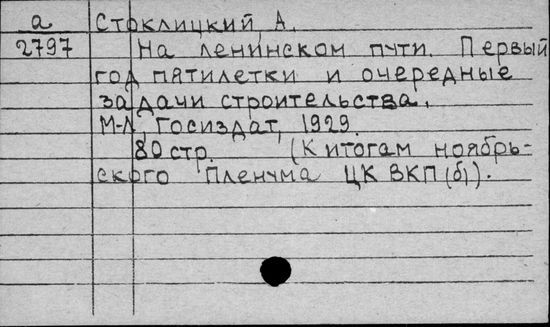 а Стоклицкий, А.
2797 На ленинском пути. Первый
год пятилетки и очередные
задачи строительства.
М-Л, Госиздат, 1929.
80 стр. (К итогам ноябрь-
ского Пленума ЦК ВКП(б)).